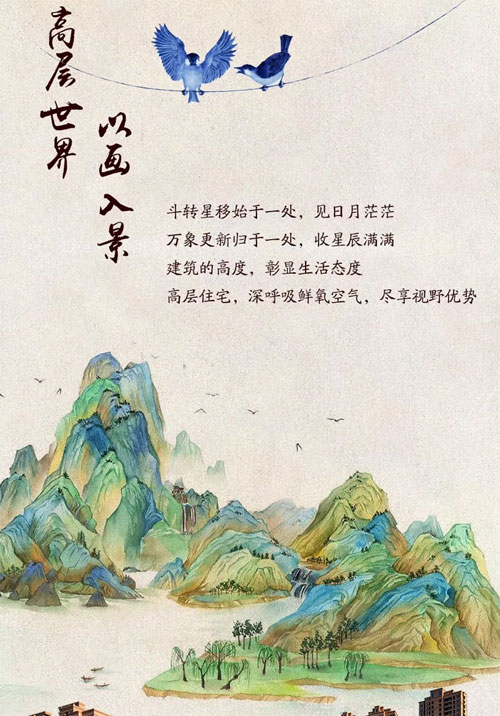 高层世界
以画入景
斗转星移始于一处，见日月茫茫
万象更新归于一处，收星辰满满
建筑的高度，彰显生活态度
高层住宅，深呼吸鲜氧空气，尽享视野优势